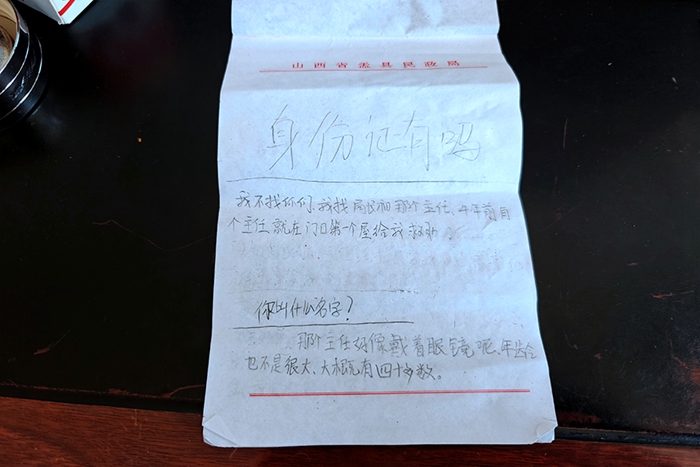 山西省盂县民政局
身份证有吗
我不找你们,我找局长和那个主任,半年前有
个主任,就在门口第一个屋给我救助.
你叫什么名字?
那个主任好像戴着眼镜呢、年龄
也不是很大、大概有四十多数。